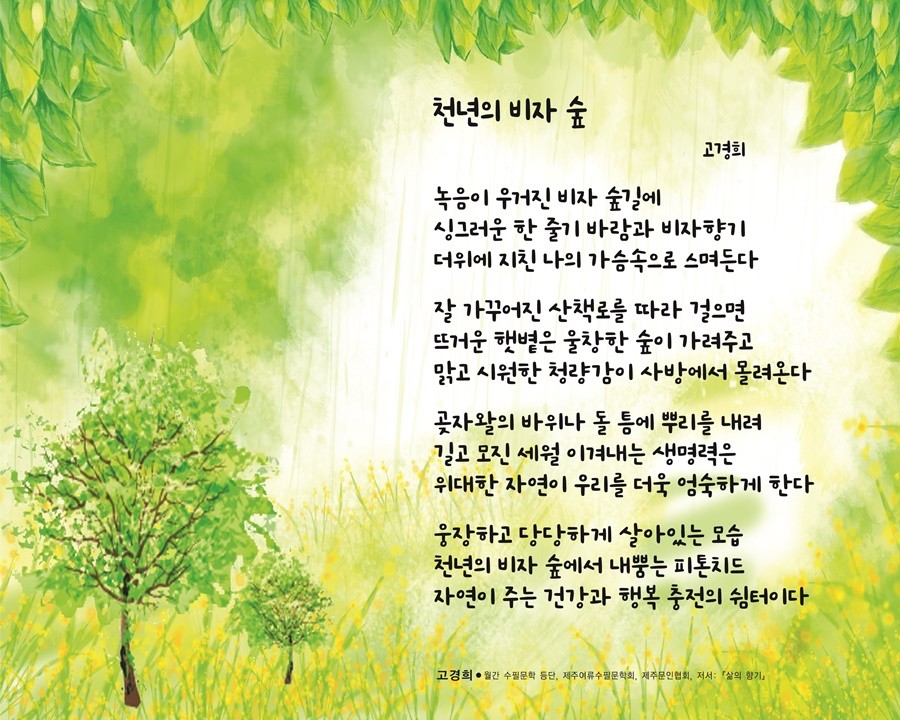 천년의 비자 숲
고경희
녹음이 우거진 비자 숲길에
싱그러운 한 줄기 바람과 비자향기
더위에 지친 나의 가슴속으로 스며든다
잘 가꾸어진 산책로를 따라 걸으면
뜨거운 햇볕은 울창한 숲이 가려주고
맑고 시원한 청량감이 사방에서 몰려온다
곶자왈의 바위나 돌 틈에 뿌리를 내려
길고 모진 세월 이겨내는 생명력은
위대한 자연이 우리를 더욱 엄숙하게 한다
웅장하고 당당하게 살아있는 모습
천년의 비자 숲에서 내뿜는 피톤치드
자연이 주는 건강과 행복 충전의 쉼터이다
고경희 ● 월간 수필문학 등단, 제주여류수필문학회, 제주문인협회, 저서:「삶의 향기」